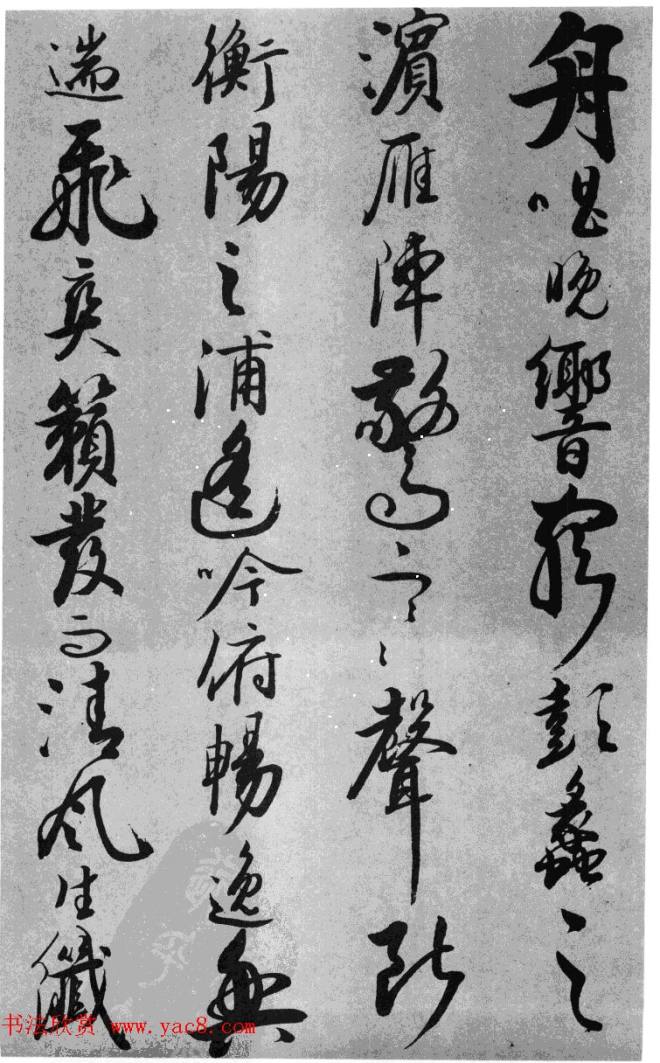 舟唱晚響窮彭蠡之
濱雁陣驚寒聲断
衡陽之浦遥吟俯暢逸興
遄飛爽籟發而清風生纖
书法欣赏 www.yac8.com